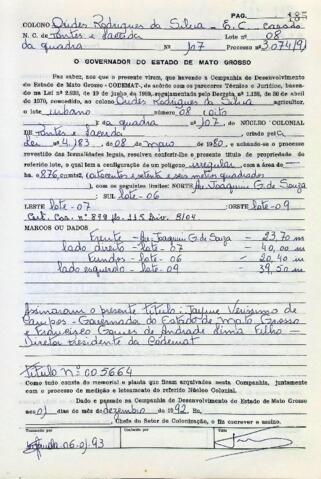 PAG. 185
COLONO Eudes Rodrigues da Silva - E.C. casado
de Pontes e Lacerda Lote Nº 08
da quadra Nº 107 Processo nº 3.074/91
O GOVERNADOR DO ESTADO DE MATO GROSSO
Faz saber, aos que o presente virem, que havendo a Companhia de Desenvolvimento
do Estado de Mato Grosso - CODEMAT, de acordo com os pareceres Técnico e Jurídico, basea-
do de 1970, concedido, ao colono Eudes Rodrigues da Silva agricultor,
o lote urbano número 08 (oito
) da quadra nº 107, DO NÚCLEO COLONIAL
DE Pontes e Lacerda, criado pela
Lei 4.183 de 08 de maio de 1980, e achando-se o processo
revestido das formalidades legais, resolveu conferir-lhe o presente título de propriedade do
referido lote, o qual tem a configuração de um polígono irregular com a área de
ha 876 m2 (oitocentos e setenta e seis metros quadrados
), com os seguintes limites: NORTE Av. Joaquim G. de Souza
SUL lote-06
LESTE lote-07 OESTE lote-09
MARCOS OU DADOS
Frente - Av. Joaquim G. de Souza - 23,70 m
lado direito - lote-07 - 40,00 m
Fundos - lote-06 - 20,40 m
lado esquerdo - lote-09 - 39,50 m
Assinaram o presente título: Jayme Verissimo de
Campos - Governador do Estado de Mato Grosso
e Francisco Gomes de Andrade Lima Filho -
Diretor Presidente da Codemat
Título Nº 005664
Como tudo consta do memorial e planta que ficam arquivados nesta Companhia, juntamente
com o processo de medição e loteamento do referido Núcleo Colonial.
Dado e passado na Companhia de Desenvolvimento do Estado de Mato Grosso
aos 01 dias do mês de dezembro de 1992. Eu,
, Chefe do Setor de Colonização, o fiz escrever e assino.
06.01.93